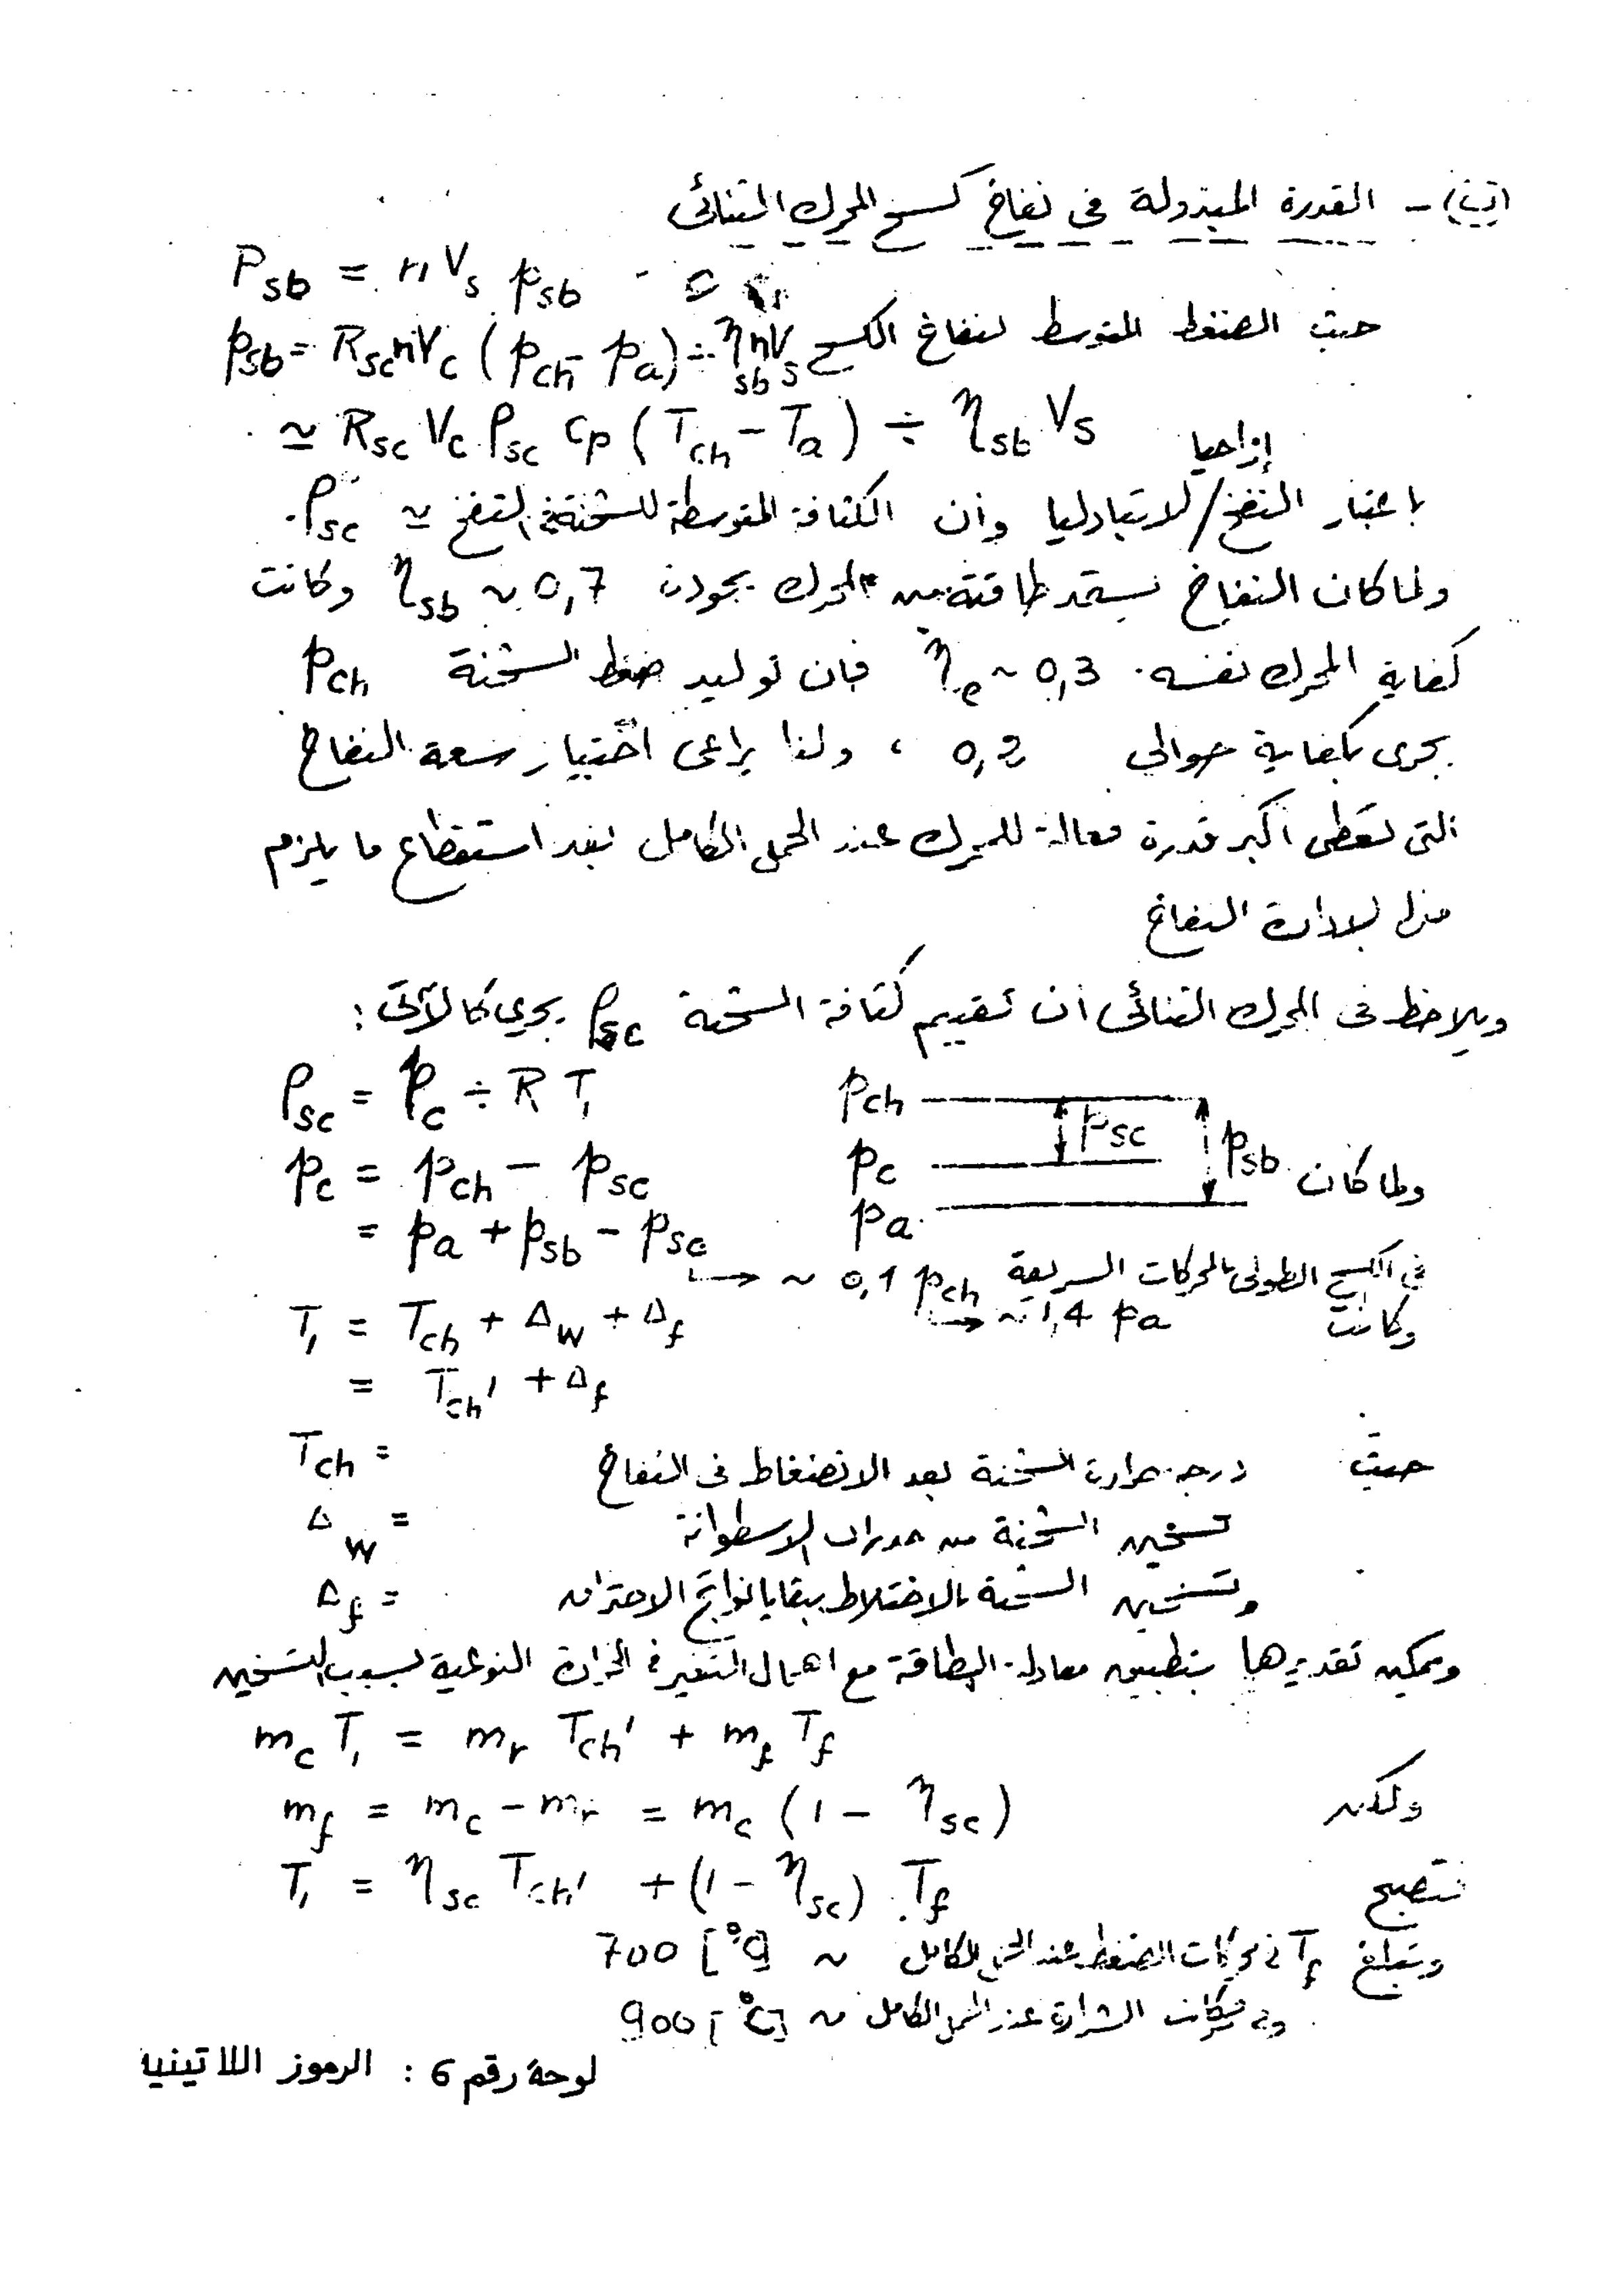 القدرة المبذولة فى نفاخ كسح المحرك الثنائى
P_sb = n V_s p_sb
حيث الضغط المتوسط لنفاخ الكسح p_sb = R_sc n V_c (p_ch - p_a) ÷ η_sb n V_s
≃ R_sc V_c ρ_sc c_p (T_ch - T_a) ÷ η_sb V_s
إزاحيا
باعتبار النفخ / لا تبادليا وان الكثافة المتوسطة للشحنة فى النفخ ≃ ρ_sc
ولما كان النفاخ يستمد طاقته من المحرك بجودة η_sb ~ 0,7 وكانت
كفاية المحرك نفسه η_e ~ 0,3 فان توليد ضغط الشحنة p_ch
يجرى بكفاية حوالى 0,2 ، ولذا يراعى اختيار سعة النفاخ
التى تعطى اكبر قدرة فعالة للمحرك عند الحمل الكامل بعد استقطاع ما يلزم
منها لإدارة النفاخ
ويلاحظ فى المحرك الثنائى ان تقييم كثافة الشحنة ρ_sc يجرى كالآتى :
ρ_sc = p_c ÷ R T_1
p_ch
p_sc
p_c = p_ch - p_sc
p_c
p_sb
ولما كان
= p_a + p_sb - p_sc
p_a
فى الكسح الطولى بالمحركات السريعة → ~ 0,1 p_ch
وكانت → ~ 1,4 p_a
T_1 = T_ch + Δ_w + Δ_f
= T_ch' + Δ_f
حيث T_ch = درجة حرارة الشحنة بعد الانضغاط فى النفاخ
Δ_w = تسخين الشحنة من جدران الاسطوانة
Δ_f = وتسخين الشحنة بالاختلاط ببقايا نواتج الاحتراق
ويمكن تقديرها بتطبيق معادلة الطاقة مع اهمال التغير فى الحرارة النوعية بسبب التسخين
m_c T_1 = m_r T_ch' + m_f T_f
ولكن m_f = m_c - m_r = m_c (1 - η_sc)
فتصبح T_1 = η_sc T_ch' + (1 - η_sc) T_f
وتبلغ T_f فى محركات الضغط عند الحمل الكامل ~ 700 [°C]
وفى محركات الشرارة عند الحمل الكامل ~ 900 [°C]
لوحة رقم 6 : الرموز اللاتينيا